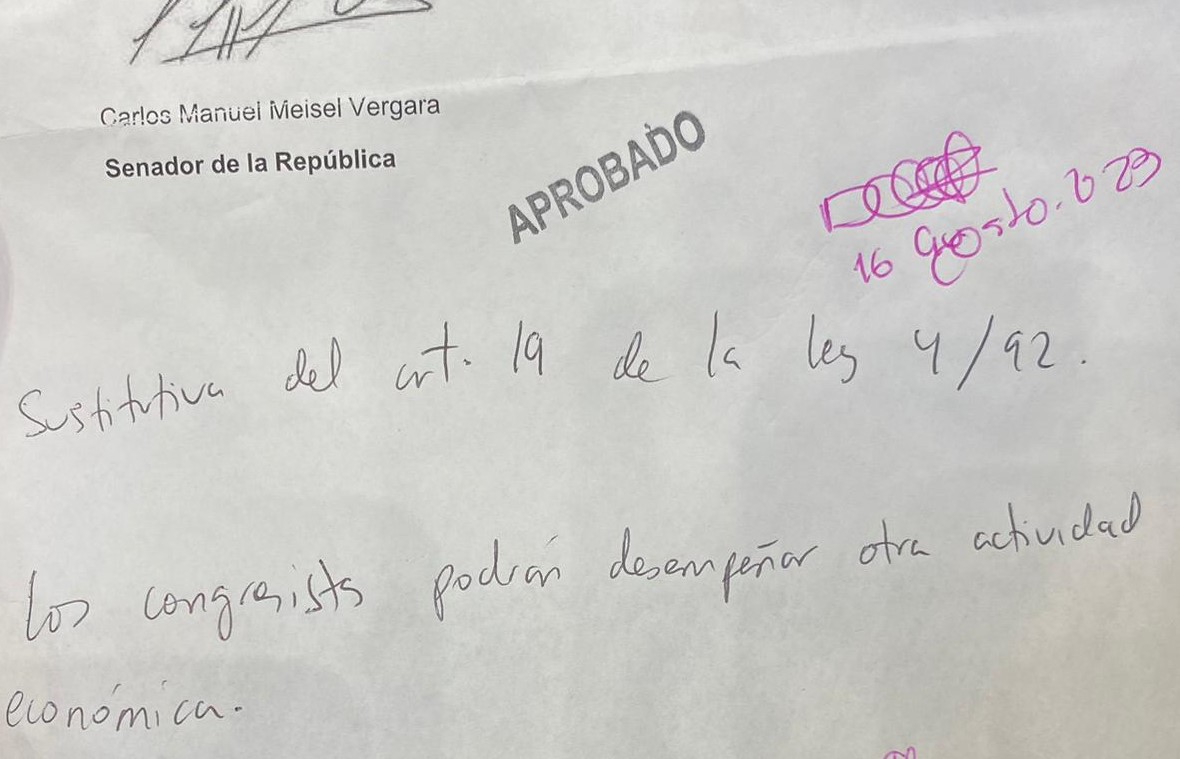 Carlos Manuel Meisel Vergara
Senador de la República
APROBADO
16 Agosto. 2023
Sustitutiva del art. 19 de la ley 4/92.
Los congresistas podrán desempeñar otra actividad
económica.